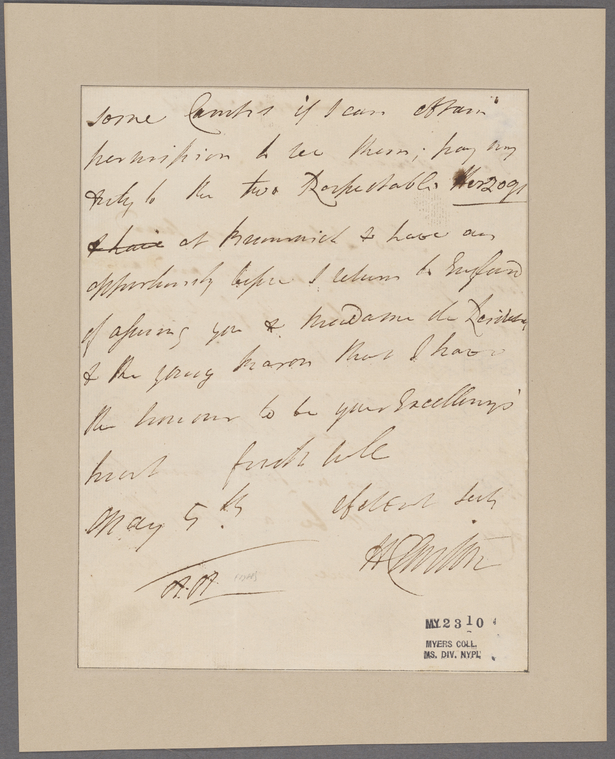 some Camps if I can obtain
permission to see them; pay my
duty to the two Respectable Herzogs
& have at Brunswick & have an
opportunity before I return to England
of assuring you & Madame de
& the young Baron that I have
the honour to be your Excellency's
most faithfull
May 5th. obedient
HClinton
MY 2310
MYERS COLL.
MS. DIV. NYPL